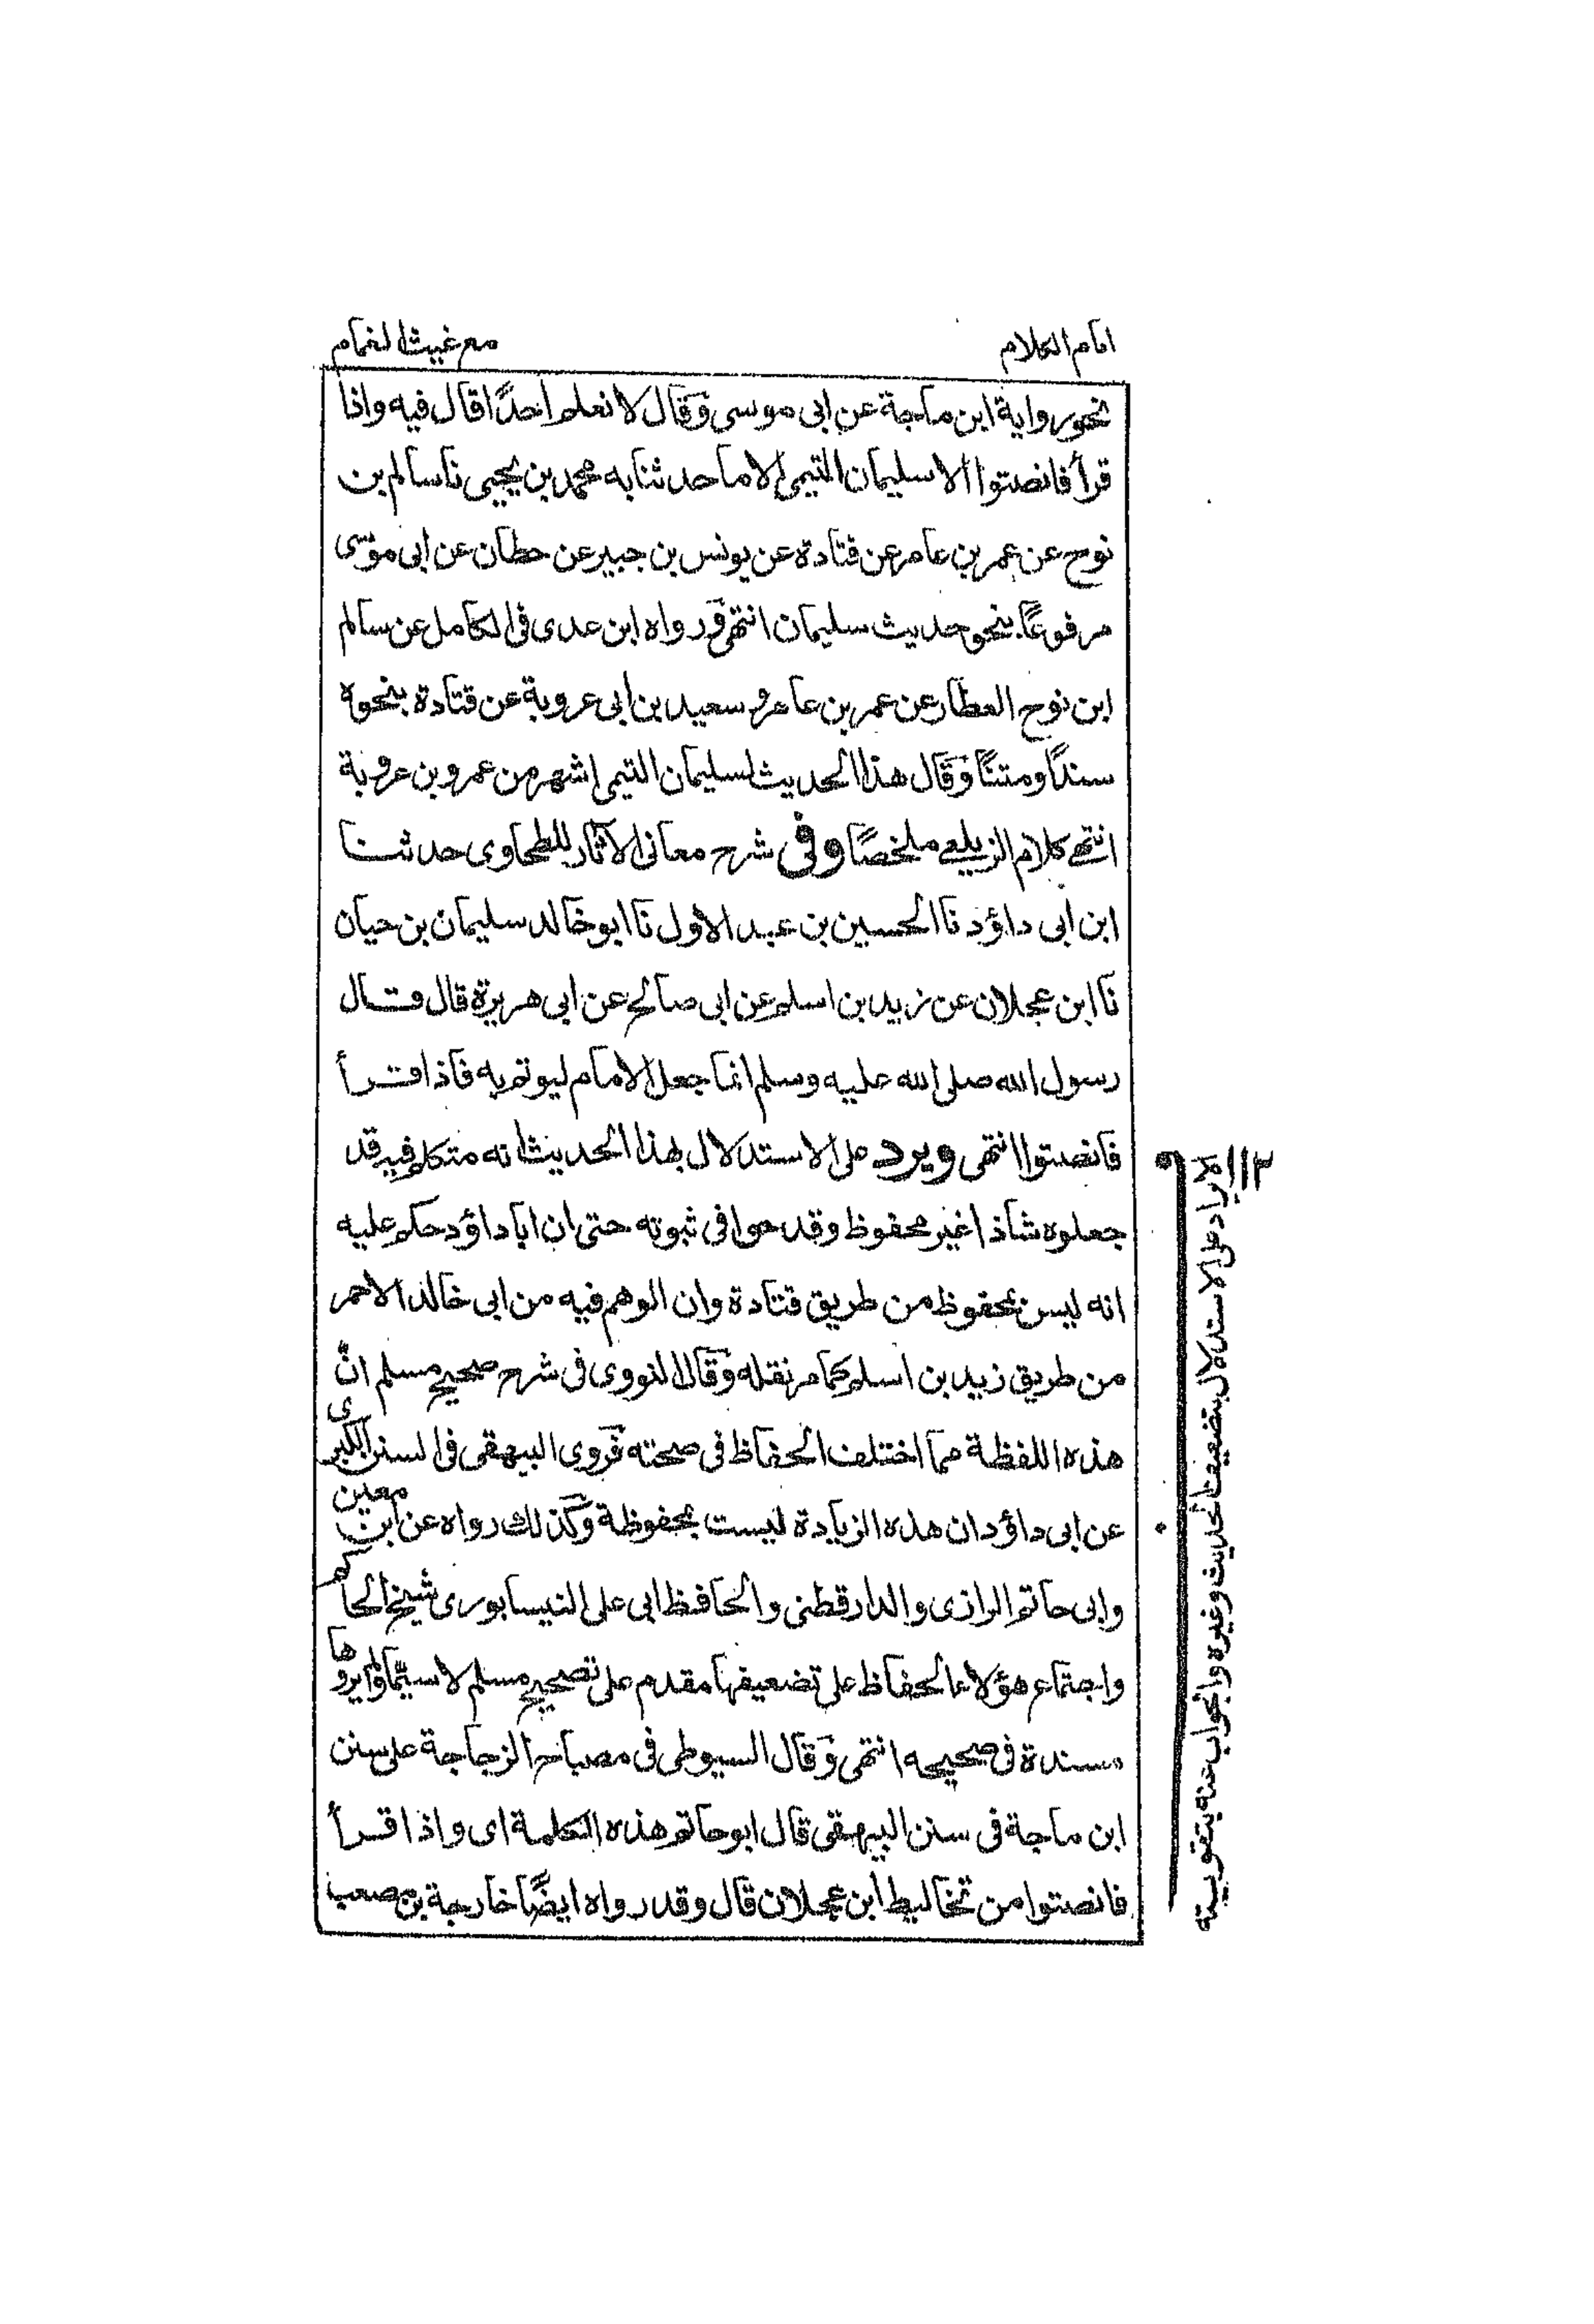 امام الكلام
مع غيث الغمام
نحو رواية ابن ماجة عن ابى موسى وقال لا نعلم احدًا قال فيه واذا
قرأ فانصتوا الا سليمان التيمى الا ما حدثنا به محمد بن يحيى نا سالم بن
نوح عن عمر بن عامر عن قتادة عن يونس بن جبير عن حطان عن ابى موسى
مرفوعًا بنحو حديث سليمان انتهى ورواه ابن عدى فى الكامل عن سالم
ابن نوح العطار عن عمر بن عامر و سعيد بن ابى عروبة عن قتادة بنحوه
سندًا ومتنًا وقال هذا الحديث لسليمان التيمى اشهر من عمرو بن عروبة
انتهى كلام الزيلعى ملخصًا وفى شرح معانى الآثار للطحاوى حدثنا
ابن ابى داؤد نا الحسين بن عبد الاول نا ابو خالد سليمان بن حيان
نا ابن عجلان عن زيد بن اسلم عن ابى صالح عن ابى هريرة قال قال
رسول الله صلى الله عليه وسلم انما جعل الامام ليوتم به فاذا قرأ
فانصتوا انتهى ويرد على الاستدلال بهذا الحديث انه متكلم فيه قد
جعلوه شاذا غير محفوظ وقدحوا فى ثبوته حتى ان ابا داؤد حكم عليه
انه ليس بمحفوظ من طريق قتادة وان الوهم فيه من ابى خالد الاحمر
من طريق زيد بن اسلم كما مر نقله وقال النووى فى شرح صحيح مسلم انّ
هذه اللفظة مما اختلف الحفاظ فى صحته فروى البيهقى فى السنن الكبرى
عن ابى داؤد ان هذه الزيادة ليست بمحفوظة وكذلك رواه عن ابن معين
وابى حاتم الرازى والدارقطنى والحافظ ابى على النيسابورى شيخ الحاكم
واجتماع هؤلاء الحفاظ على تضعيفها مقدم على تصحيح مسلم لا سيّما ولم يروها
مسندة فى صحيحه انتهى وقال السيوطى فى مصباح الزجاجة على سنن
ابن ماجة فى سنن البيهقى قال ابو حاتم هذه الكلمة اى واذا قرأ
فانصتوا من تخاليط ابن عجلان قال وقد رواه ايضًا خارجة بن مصعب
الايراد على الاستدلال بتضعيف الحديث وغيره والجواب عنه بتقويته
١١٣